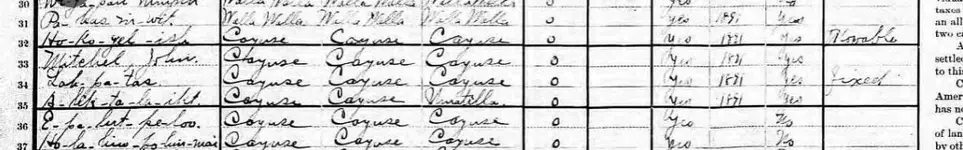 30 Walla Walla Walla Walla
31 Walla Walla Walla Walla Walla Walla 0 yes 1891 yes taxes
32 Ho-ko-yel-ish Cayuse Cayuse Cayuse 0 yes 1891 Yes Movable
33 Mitchel, John. Cayuse Cayuse Cayuse 0 Yes 1891 Yes settled
34 Lok-pa-tas. Cayuse Cayuse Cayuse 0 Yes 1891 Yes Fixed
35 Cayuse Cayuse Umatella. 0 Yes 1891 Yes
36 Cayuse Cayuse Cayuse 0 Yes No
37 Cayuse Cayuse Cayuse 0 yes No
an all
two ca
A
to this
C
Amer
has no
C
of lan
by oth